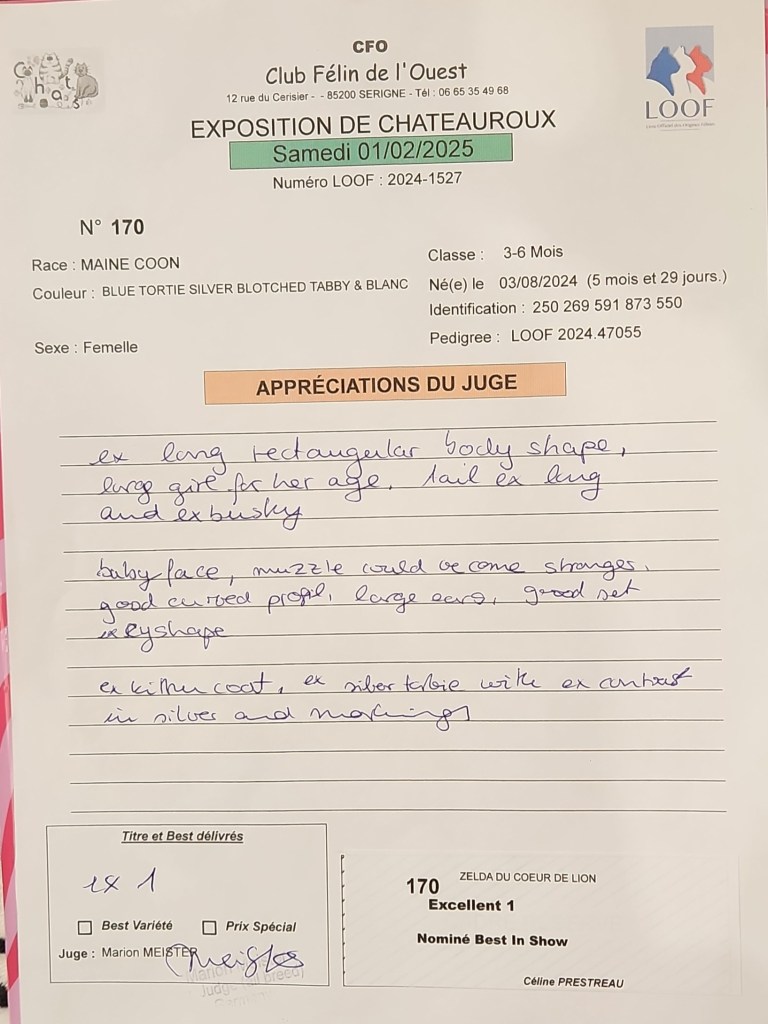 Chats
CFO
Club Félin de l'Ouest
12 rue du Cerisier - - 85200 SERIGNE - Tél : 06 65 35 49 68
LOOF
EXPOSITION DE CHATEAUROUX
Samedi 01/02/2025
Numéro LOOF : 2024-1527
N° 170
Race : MAINE COON
Couleur : BLUE TORTIE SILVER BLOTCHED TABBY & BLANC
Sexe : Femelle
Classe : 3-6 Mois
Né(e) le 03/08/2024 (5 mois et 29 jours.)
Identification : 250 269 591 873 550
Pedigree : LOOF 2024.47055
APPRÉCIATIONS DU JUGE
ex long rectangular body shape,
large girl for her age, tail ex long
and ex busky
baby face, muzzle could become stronger.
good curved profil, large ears, good set
ex eyshape
ex kitten coat, ex silver torbie with ex contrast
in silver and markings
Titre et Best délivrés
ex 1
Best Variété Prix Spécial
Juge : Marion MEISTER
Meister
170 ZELDA DU COEUR DE LION
Excellent 1
Nominé Best In Show
Céline PRESTREAU